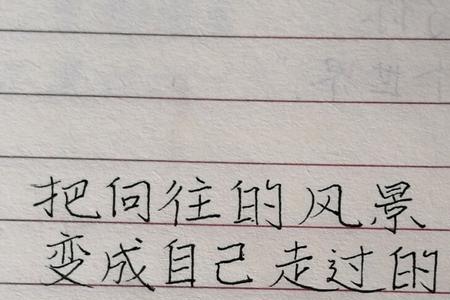 把向往的风景
变成自己走过的